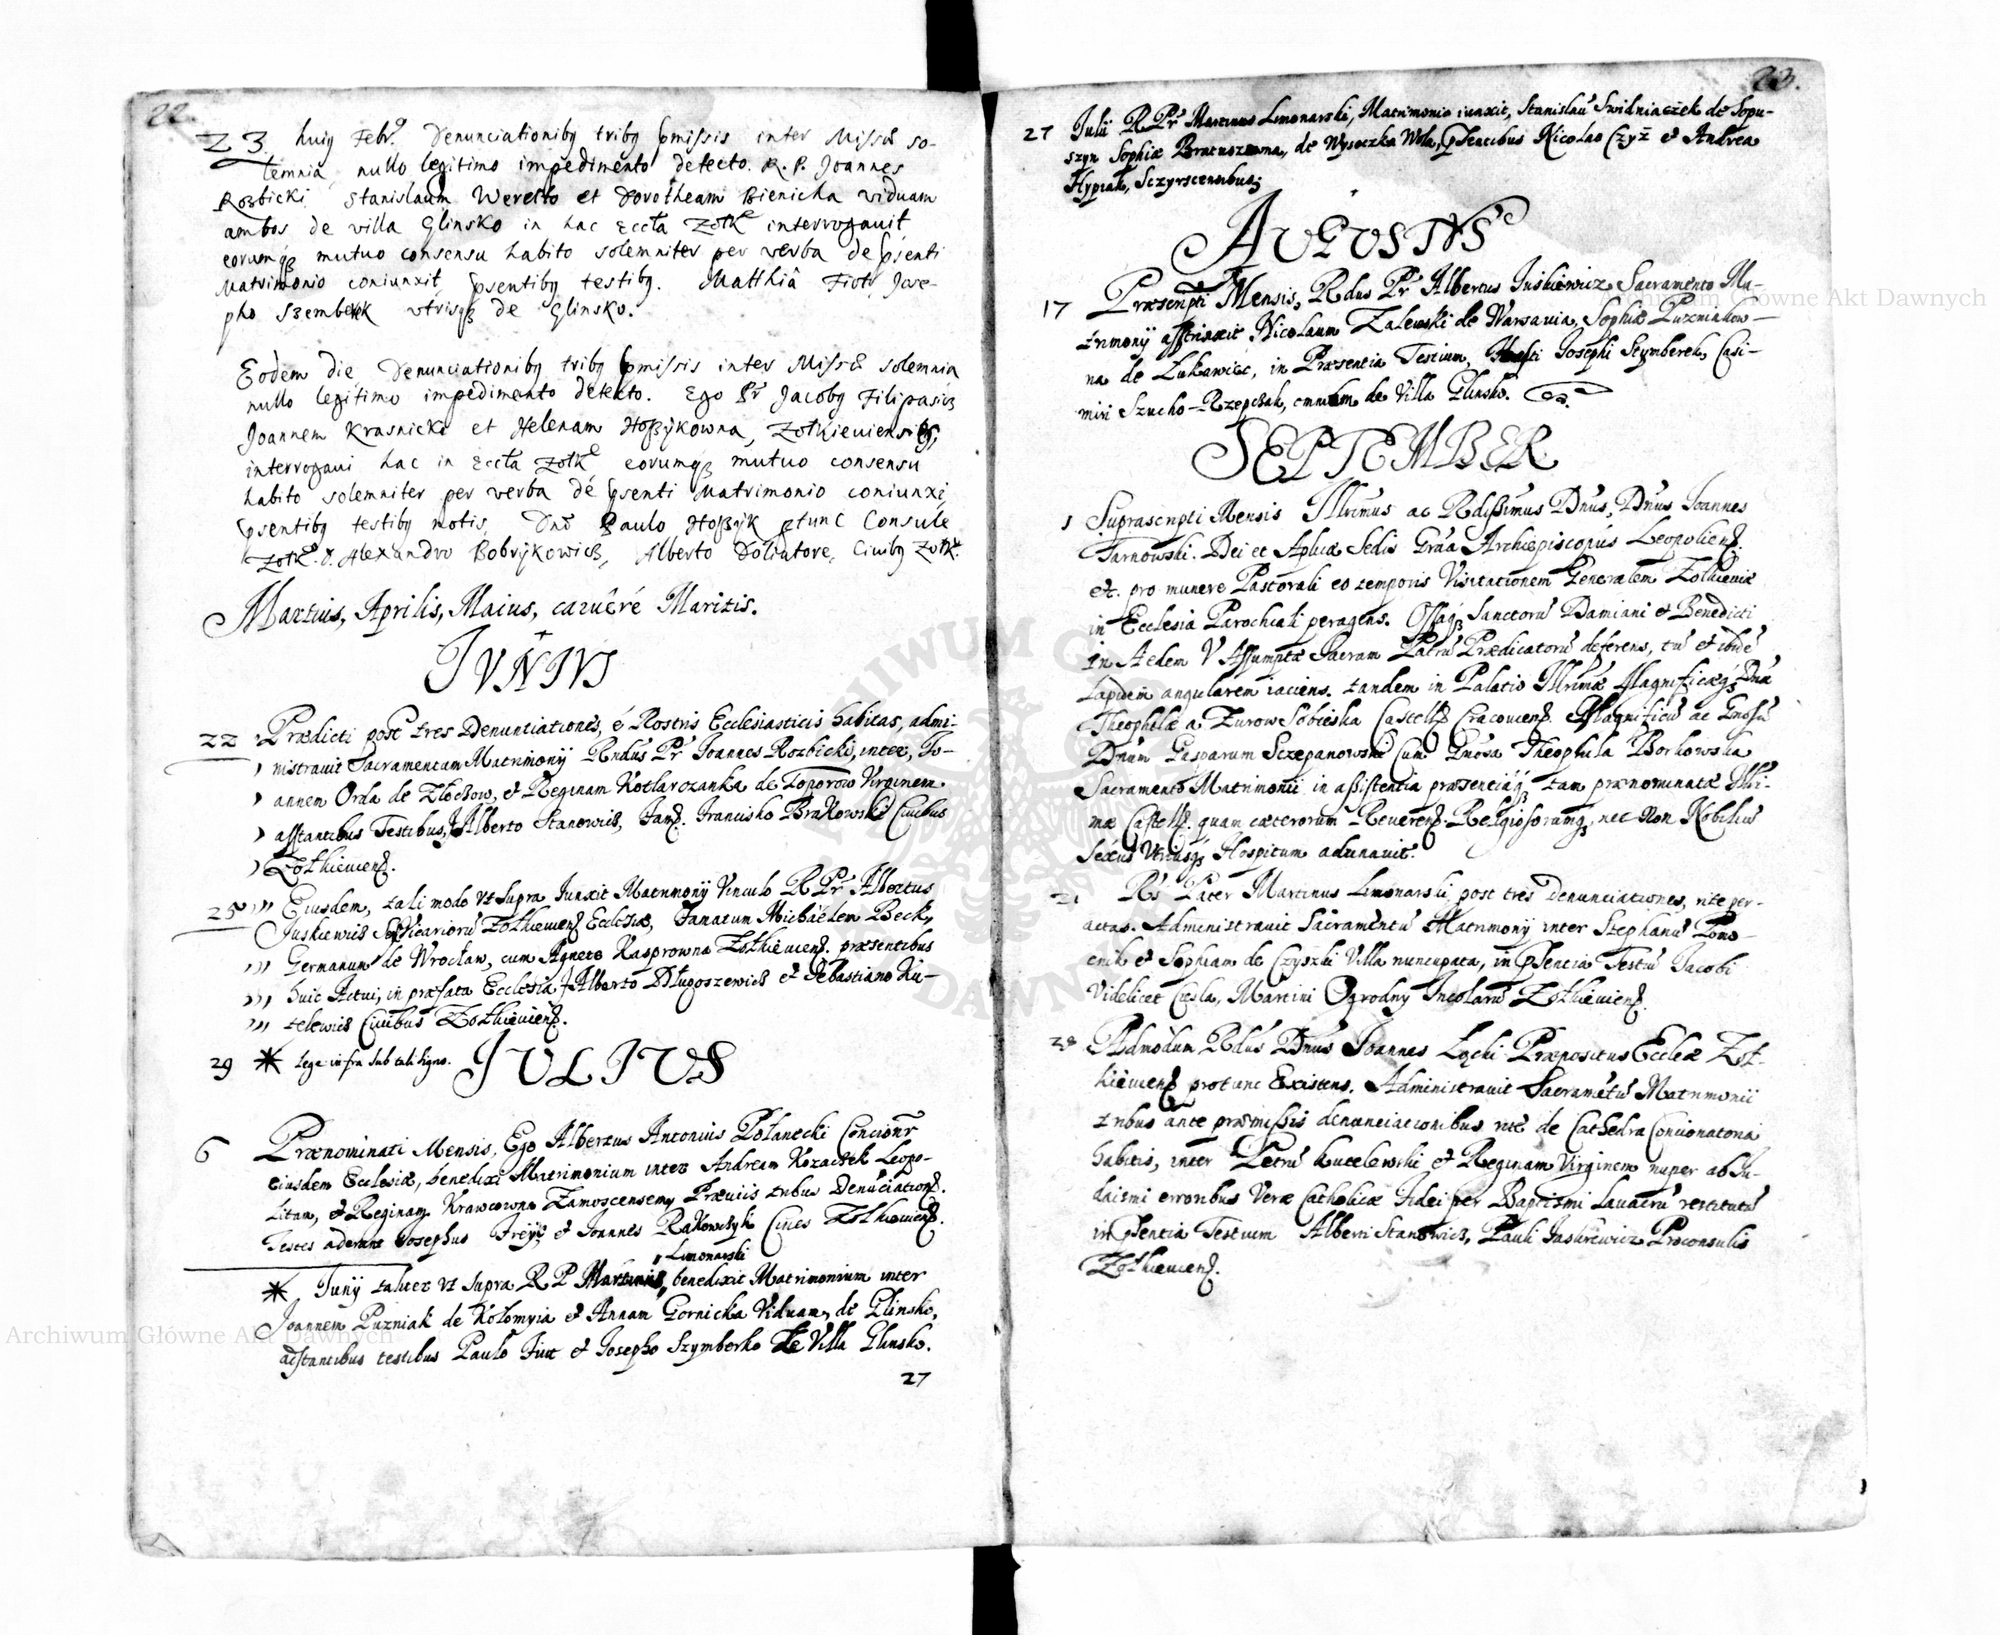 22.
23. huiq Febr. Denunciationibq tribq pmissis inter Missa so-
lemnia nullo legitimo impedimento detecto. R. P. Joannes
Rozbicki Stanislaum Werelto et Dorotheam Bienicka viduam
ambos de villa Glinsko in hac Eccła Zołk. interrogauit
eorumq mutuo consensu habito solemniter per verba de psenti
Matrimonio coniunxit psentibq testibq. Matthia Fiot, Jose-
pho Szembek utrisq de Glinsko.
Eodem die Denunciationibq tribq pmissis inter Missa solemnia
nullo legitimo impedimento detecto. Ego Pr Jacobq Filipasicz
Joannem Krasnicki et Helenam Hoszykowna, Zołkieuiensibq,
interrogaui hac in Eccła Zołk. eorumq mutuo consensu
habito solemniter per verba de psenti Matrimonio coniunxi,
psentibq testibq notis Dno Paulo Hoszyk ptunc Consule
Zołk. D. Alexandro Bobrykowicz, Alberto Doliatore, Ciuibq Zołk.
Martius, Aprilis, Maius, caruêré Maritis.
JVNIVS
22 Prædicti post tres Denuntiationes, é Rostris Ecclesiasticis habitas, admi-
nistrauit Sacramentum Matrimonij Rndus Pr Joannes Rozbicki, inter, Jo-
annem Orda de Złoczow, et Reginam Kotlarczanka de Toporow Virginem
asstantibus Testibus, Alberto Stanowicz, Fam. Francisko Brakowski Ciuibus
Zołkieuien.
25 Eiusdem, tali modo vt supra Junxit Matrimonij Vinculo R Pr Albertus
Juskiewicz Vicariorū Zołkieuien Ecclesiæ, Famatum Michaëlem Beck,
Germanum de Wrocław, cum Agnete Kasprowna Zołkieuien. præsentibus
huic Actui, in præfata Ecclesia, Alberto Długoszewicz et Sebastiano Ku-
telewicz Ciuibus Zołkieuien.
29 * Lege infra sub tali signo. JULIUS
6 Prænominati Mensis, Ego Albertus Antonius Połanecki Concionr
eiusdem Ecclesiæ, benedixi Matrimonium inter Andream Kozaczek Leopo-
litam, et Reginam Krawcowna Zamoscensem, Præuiis tribus Denūciation.
Testes aderant Josephus Freyr, et Joannes Rakowczyk Ciues Zołkieuien.
Limonarski
* Junij taliter vt supra R P Martinus, benedixit Matrimonium inter
Joannem Puzniak de Kołomyia et Annam Gornicka Viduam, de Glinsko,
adstantibus testibus Paulo Fiut et Josepho Szymberko de Villa Glinsko.
27
23.
27 Julii R Pr Martinus Limonarski, Matrimonio iunxit, Stanislaū Swidniaczek de Sopu-
szyn Sophiæ Bratuszewna, de Wysoczka Wola, psentibus Nicolao Czyż et Andrea
Hypiak, Sczyrscensibus;
AUGUSTUS
17 Præscripti Mensis, Rdus Pr Albertus Juskiewicz Sacramento Ma-
trimonij asstrinxit Nicolaum Zalewski de Warsauia, Sophiæ Puzniakow-
na de Łukawiec, in Præsentia Testium, Josephi Szymberek, Casi-
miri Szucho-Rzepczak, omnium de Villa Glinsko.
SEPTEMBER
1 Suprascripti Mensis Illrimus ac Rdissimus Dnus, Dnus Joannes
Tarnowski. Dei et Aplicæ Sedis Grãa Archiepiscopus Leopolien.
etc. pro munere Pastorali eo temporis Visitationem Generalem Zolkieuiæ
in Ecclesia Parochiali peragens. Ossaq Sanctorū Damiani et Benedicti
in Aedem V Assumptæ Sacram Patrū Prædicatorū deferens, tū et ibidē
Lapidem angularem iaciens. tandem in Palatio Illrimæ Magnificæq Dnæ
Theophilæ a Zurow Sobieska Castell. Cracouien. Magnificū ac Gnosū
Dnum Gasparum Sczepanowski cum Gnosa Theophila Borkowska
Sacramento Matrimonii in assistentia præsentiaq tam prænominatæ Illri-
mæ Castell. quam cæterorum Reueren. Religiosorumq, nec non Nobiliū
sexus Vtriusq Hospitum adunauit.
21 Rs Pater Martinus Limonarski post tres Denunciationes, rite per-
actas. Administrauit Sacramentū Matrimonij inter Stephanū Pomo-
cnik et Sophiam de Czyszki Villa nuncupata, in psentia Testiū Jacobi
Videlicet Ciesla, Martini Ogrodny Incolarū Zołkieuien.
28 Admodum Rdus Dnus Joannes Łącki Præpositus Eccleæ Zoł-
kieuien protunc Existens. Administrauit Sacramētū Matrimonii
tribus ante præmissis denunciationibus rite de Cathedra Concionatoria
habitis, inter Petrū Kucelewski et Reginam Virginem nuper ab Ju-
daismi erroribus Veræ Catholicæ Fidei per Baptismi Lauacrū restitutā
in psentia Testium Alberti Stanowicz, Pauli Jaskiewicz Proconsulis
Zołkieuien.
Archiwum Główne Akt Dawnych
Archiwum Główne Akt Dawnych